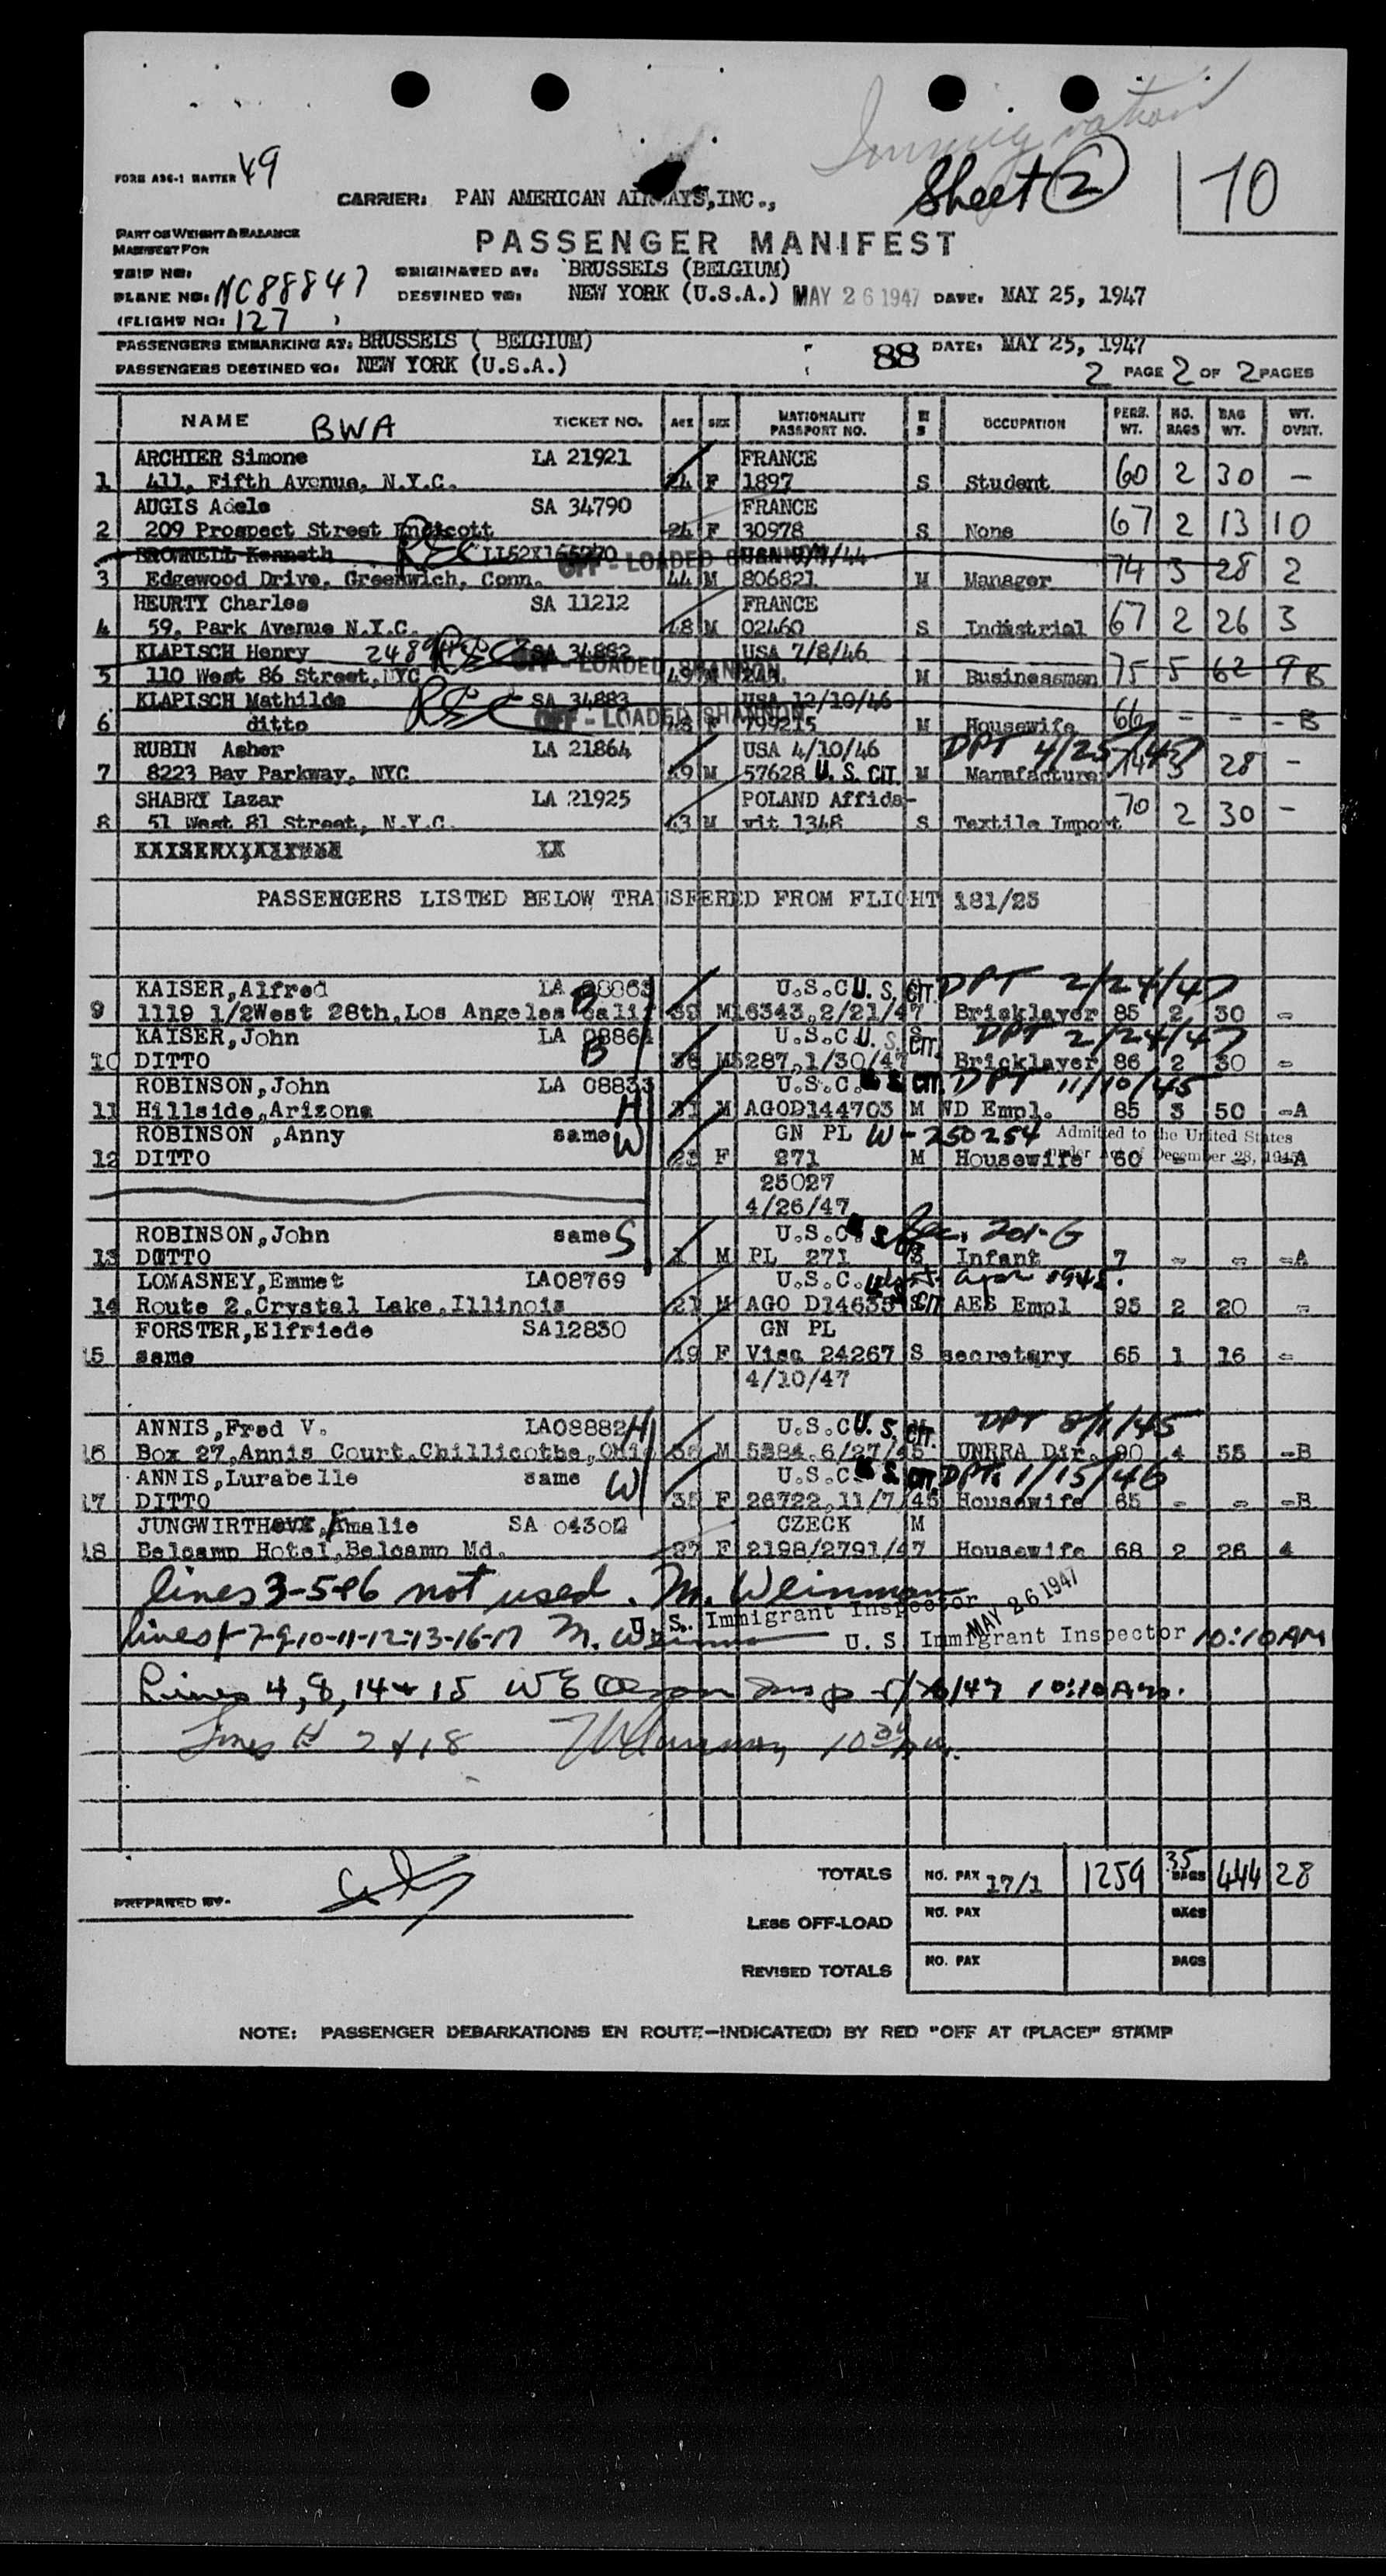 Immigration
FORM A36-1 MASTER 49
CARRIER: PAN AMERICAN AIRWAYS, INC.,
Sheet 2
10
PART OF WEIGHT & BALANCE
MANIFEST FOR
PASSENGER MANIFEST
TRIP NO:
ORIGINATED AT: BRUSSELS (BELGIUM)
PLANE NO: NC88847
DESTINED TO: NEW YORK (U.S.A.) MAY 26 1947 DATE: MAY 25, 1947
(FLIGHT NO: 127 )
PASSENGERS EMBARKING AT: BRUSSELS ( BELGIUM) 88 DATE: MAY 25, 1947
PASSENGERS DESTINED TO: NEW YORK (U.S.A.) 2 PAGE 2 OF 2 PAGES
NAME BWA TICKET NO. AGE SEX NATIONALITY PASSPORT NO. M S OCCUPATION PERS. WT. NO. BAGS BAG WT. WT. OVNT.
ARCHIER Simone LA 21921 FRANCE
1 411, Fifth Avenue, N.Y.C. 24 F 1897 S Student 60 2 30 —
AUGIS Adele SA 34790 FRANCE
2 209 Prospect Street Endicott 24 F 30978 S None 67 2 13 10
BROWNELL Kenneth OFF-LOADED
3 Edgewood Drive, Greenwich, Conn. 44 M 806821 M Manager 74 3 28 2
HEURTY Charles SA 11212 FRANCE
4 59, Park Avenue N.Y.C. 18 M 02460 S Industrial 67 2 26 3
KLAPISCH Henry 248 SA 34882 USA 7/8/46
5 110 West 86 Street, NYC OFF-LOADED SHANNON 49 M M Businessman 75 5 62 9 B
KLAPISCH Mathilde SA 34883 USA 12/10/46
6 ditto OFF-LOADED SHANNON F 799215 M Housewife 66 - - - B
RUBIN Asher LA 21864 USA 4/10/46 DPT 4/25/47
7 8223 Bay Parkway, NYC 49 M 57628 U.S. CIT. M Manufacturer 74 3 28 -
SHABRY Lazar LA 21925 POLAND Affida-
8 51 West 81 Street, N.Y.C. 43 M vit 1348 S Textile Import 70 2 30 —
PASSENGERS LISTED BELOW TRANSFERED FROM FLIGHT 181/25
KAISER,Alfred LA 08863 U.S.C U.S. CIT. DPT 2/24/47
9 1119 1/2West 28th,Los Angeles Calif B 39 M 16343,2/21/47 Bricklayer 85 2 30 -
KAISER,John LA 08864 U.S.C U.S. CIT. DPT 2/24/47
10 DITTO B 38 M 5287,1/30/47 Bricklayer 86 2 30 -
ROBINSON,John LA 08833 U.S.C. U S CIT. DPT 11/10/45
11 Hillside,Arizona H 31 M AGOD144703 M WD Empl. 85 3 50 -A
ROBINSON ,Anny same W GN PL W-250254 Admitted to the United States
12 DITTO 23 F 271 M Housewife under Act of December 28, 1945 60 - - -A
25027
4/26/47
ROBINSON,John same S U.S.C. Sec. 201-G
13 DITTO 1 M PL 271 S Infant 7 - - -A
LOMASNEY,Emmet LA08769 U.S.C. 1945.
14 Route 2,Crystal Lake,Illinois 21 M AGO D14635 S CIT AES Empl 95 2 20 -
FORSTER,Elfriede SA12830 GN PL
15 same 19 F Visa 24267 S secretary 65 1 16 -
4/10/47
ANNIS,Fred V. LA08882 H U.S.C U.S. CIT. DPT 8/1/45
16 Box 27,Annis Court,Chillicothe,Ohio 36 M 5384,6/27/45 UNRRA Dir. 90 4 55 -B
ANNIS,Lurabelle same W U.S.C. U S CIT. DPT. 1/15/46
17 DITTO 35 F 26722,11/7/45 Housewife 65 - - -B
JUNGWIRTH Amalie SA 04302 CZECK M
18 Belcamp Hotel,Belcamp Md. 27 F 2198/2791/47 Housewife 68 2 26 4
lines 3-5&6 not used. M. Weinman
U. S. Immigrant Inspector MAY 26 1947
Lines 1-7-9-10-11-12-13-16-17 M. Weinman U. S. Immigrant Inspector 10:10 AM
Lines 4, 8, 14 & 15 Insp 5/26/47 10:10 Am.
Lines # 2 & 18
TOTALS NO. PAX 17/1 1259 35 BAGS 444 28
PREPARED BY-
LESS OFF-LOAD NO. PAX BAGS
REVISED TOTALS NO. PAX BAGS
NOTE: PASSENGER DEBARKATIONS EN ROUTE—INDICATE(D) BY RED "OFF AT (PLACE)" STAMP